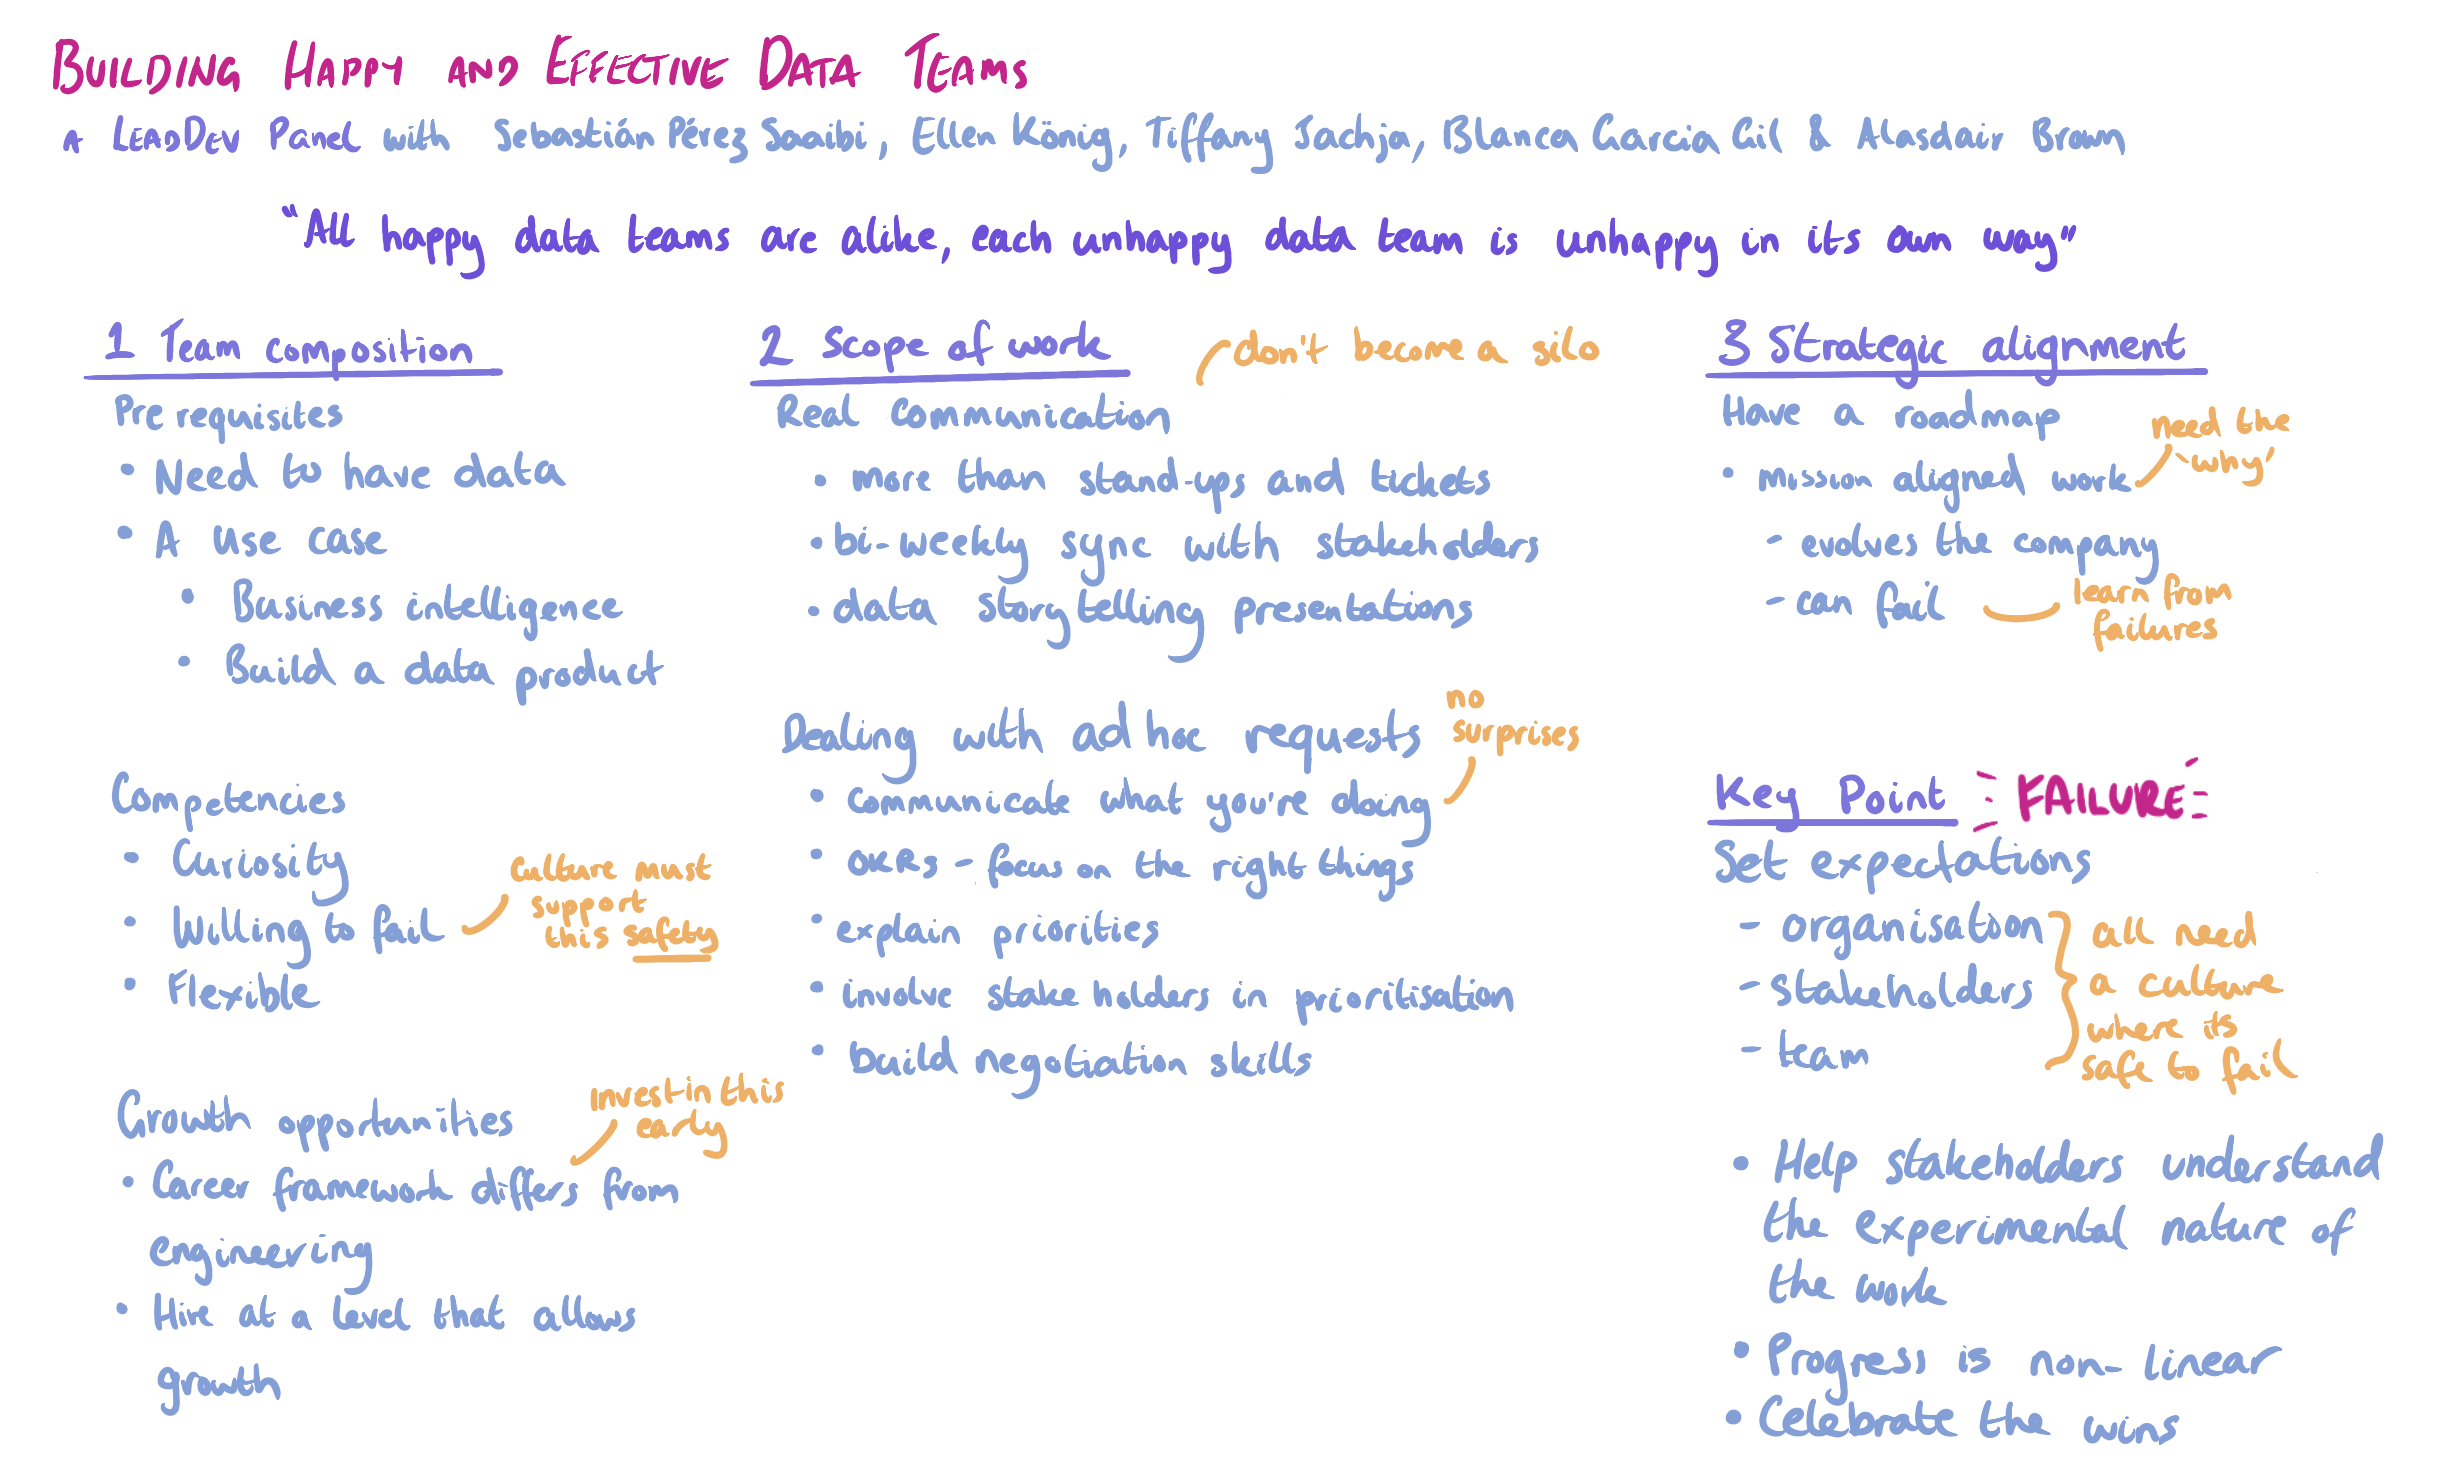 BUILDING HAPPY AND EFFECTIVE DATA TEAMS
A LEADDEV Panel with Sebastián Pérez Saaibi, Ellen König, Tiffany Jachja, Blanca Garcia Gil & Alasdair Brown
"All happy data teams are alike, each unhappy data team is unhappy in its own way"
1 Team composition
Pre requisites
• Need to have data
• A use case
• Business intelligence
• Build a data product
Competencies
• Curiosity
• Willing to fail
culture must
support
this safety
• Flexible
Growth opportunities
invest in this
early
• Career framework differs from
engineering
• Hire at a level that allows
growth
2 Scope of work
don't become a silo
Real communication
• more than stand-ups and tickets
• bi-weekly sync with stakeholders
• data storytelling presentations
Dealing with ad hoc requests
no
surprises
• communicate what you're doing
• OKRs - focus on the right things
• explain priorities
• involve stake holders in prioritisation
• build negotiation skills
3 Strategic alignment
Have a roadmap
• mission aligned work
need the
'why'
- evolves the company
- can fail
learn from
failures
Key Point FAILURE
Set expectations
- organisation
- stakeholders
- team
all need
a culture
where its
safe to fail
• Help stakeholders understand
the experimental nature of
the work
• Progress is non-linear
• Celebrate the wins